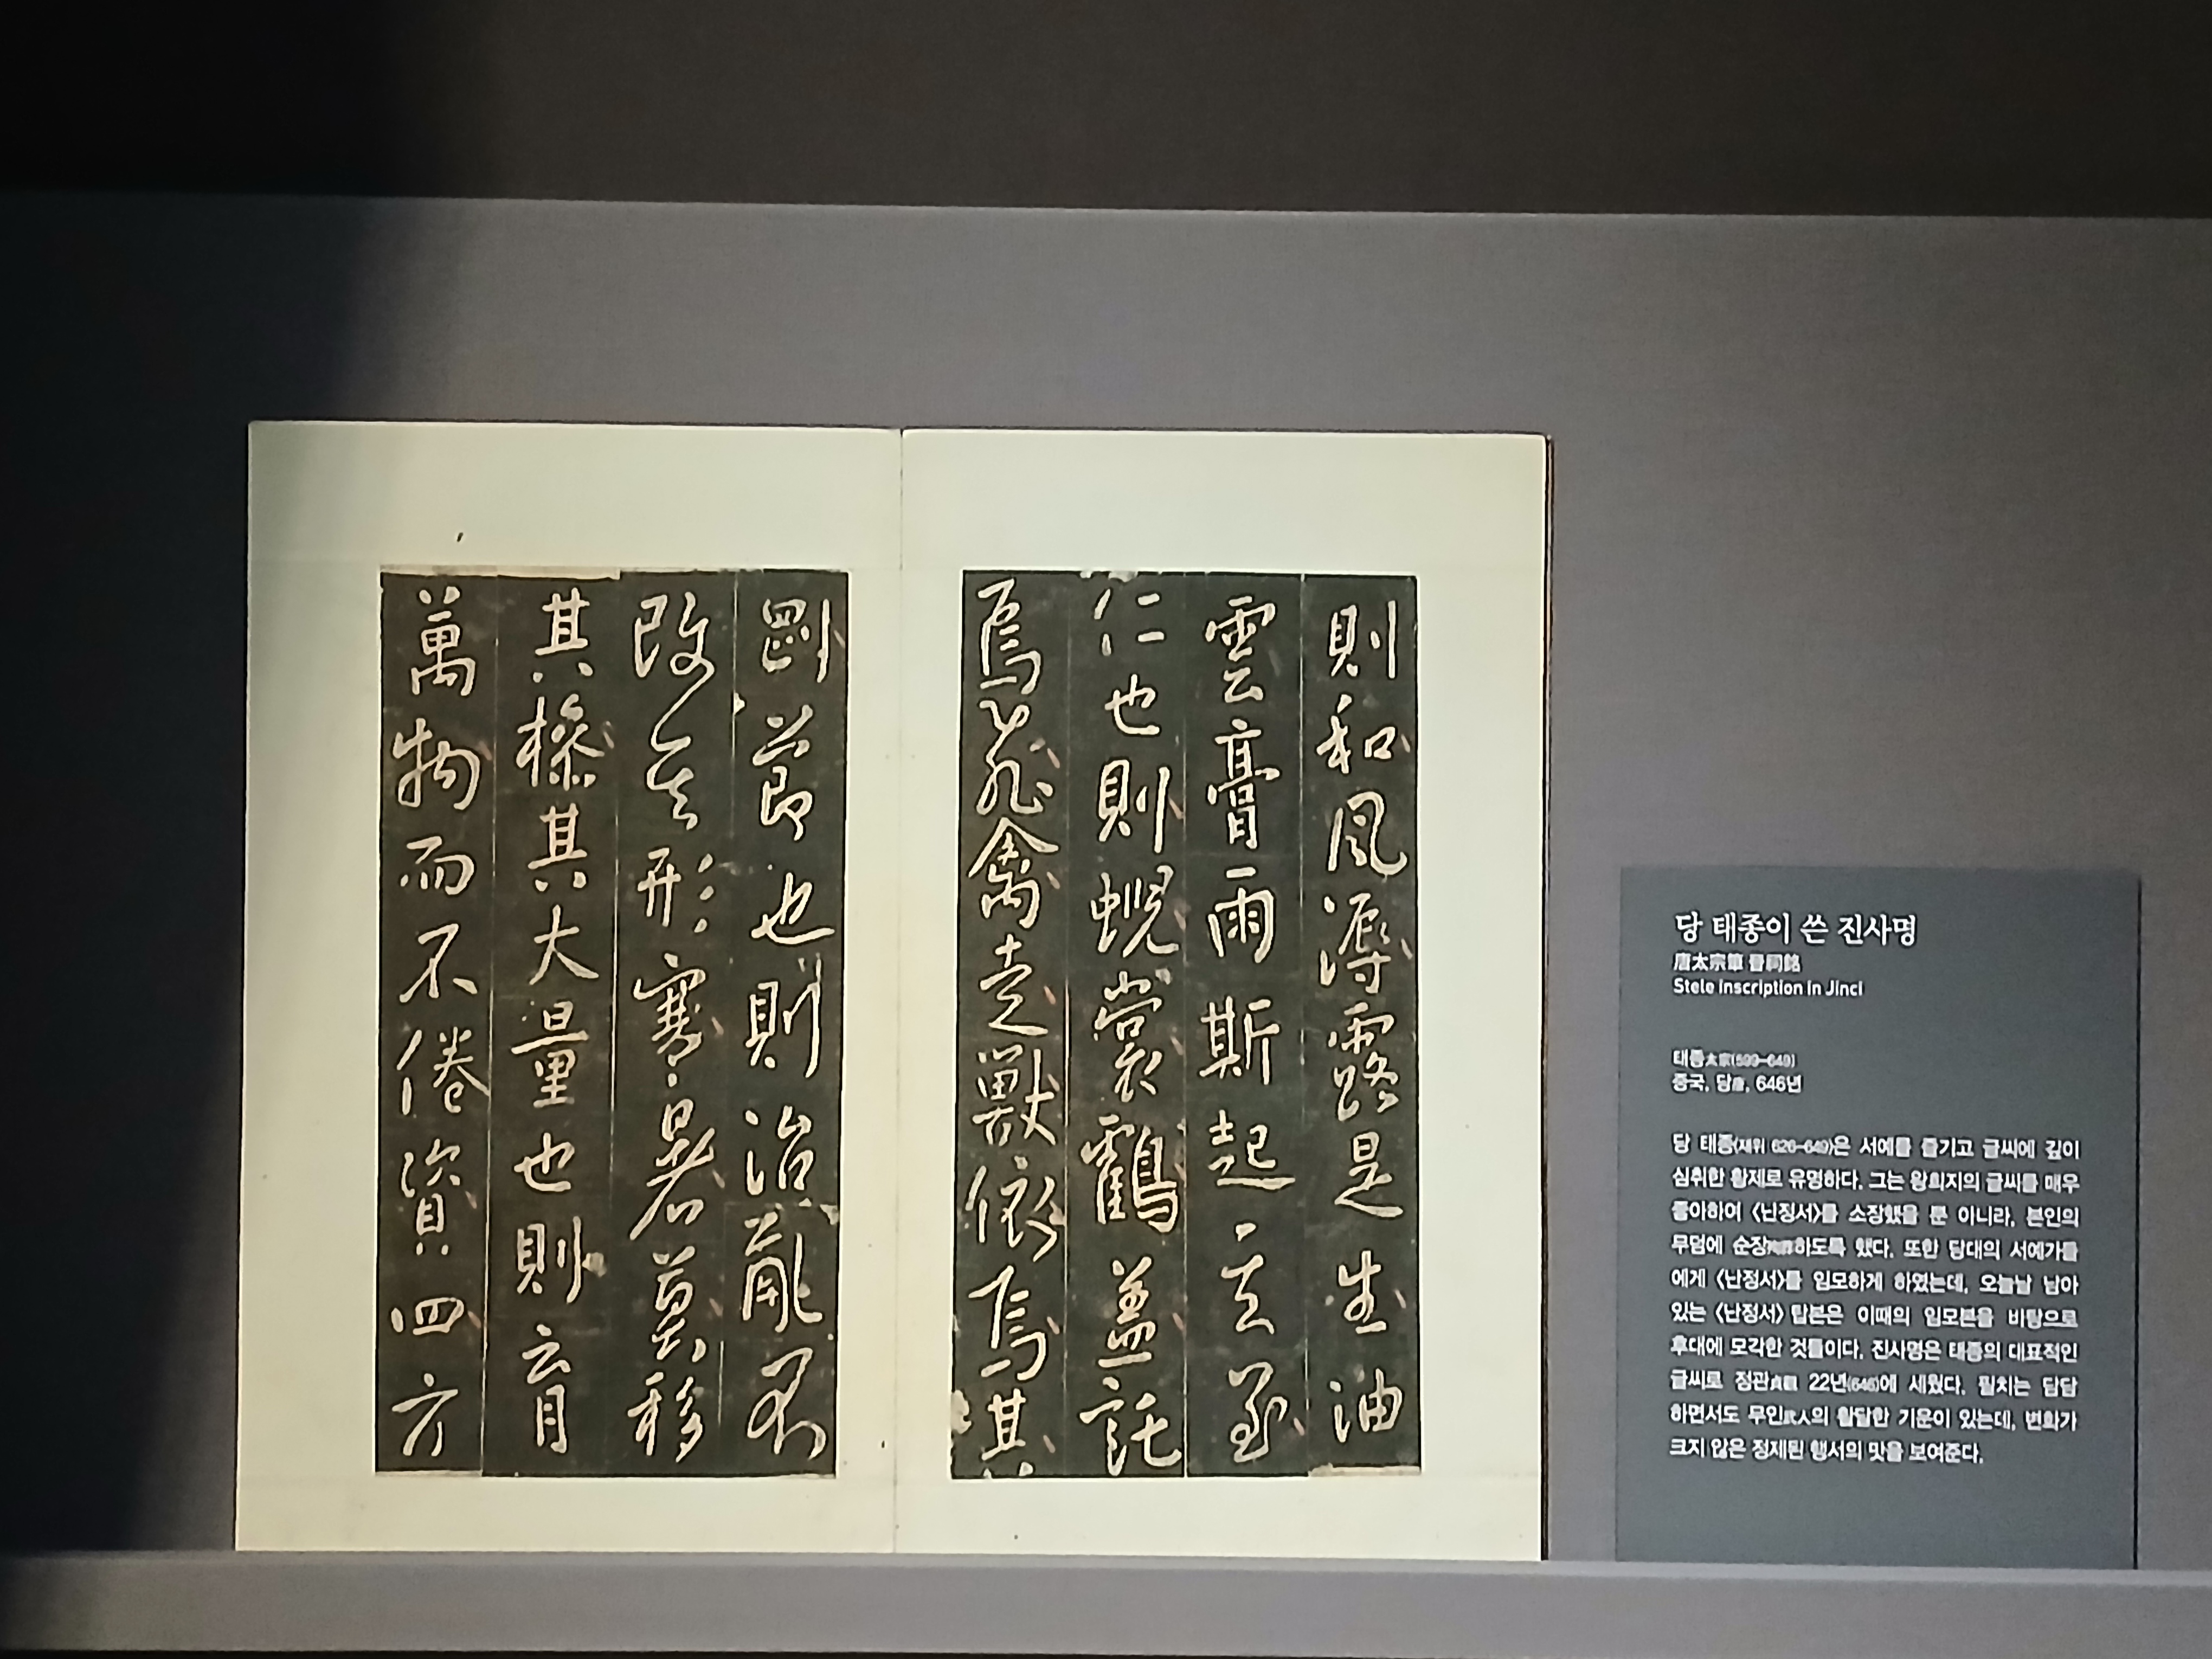 則和風溽露是生油
雲膏雨斯起其至
仁也則蜺裳鶴蓋託
焉飛禽走獸依焉其
剛節也則治亂不
改其形寒暑莫移
其操其大量也則育
萬物而不倦資四方
당 태종이 쓴 진사명
唐太宗筆 晉祠銘
Stele Inscription in Jinci
태종太宗(599–649)
중국, 당唐, 646년
당 태종(재위 626–649)은 서예를 즐기고 글씨에 깊이
심취한 황제로 유명하다. 그는 왕희지의 글씨를 매우
좋아하여 〈난정서〉를 소장했을 뿐 아니라, 본인의
무덤에 순장殉葬하도록 했다. 또한 당대의 서예가들
에게 〈난정서〉를 임모하게 하였는데, 오늘날 남아
있는 〈난정서〉 탑본은 이때의 임모본을 바탕으로
후대에 모각한 것들이다. 진사명은 태종의 대표적인
글씨로 정관貞觀 22년(646)에 세웠다. 필치는 담담
하면서도 무인武人의 활달한 기운이 있는데, 변화가
크지 않은 정제된 행서의 맛을 보여준다.